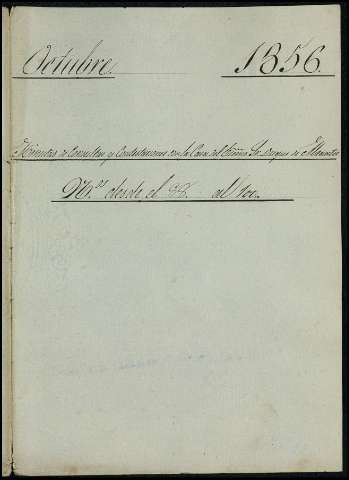 Octubre 1856.
Minutas de Consultas y Contestaciones con la Casa del Excmo. Sr. Duque de
N.os desde el 98. al 100.